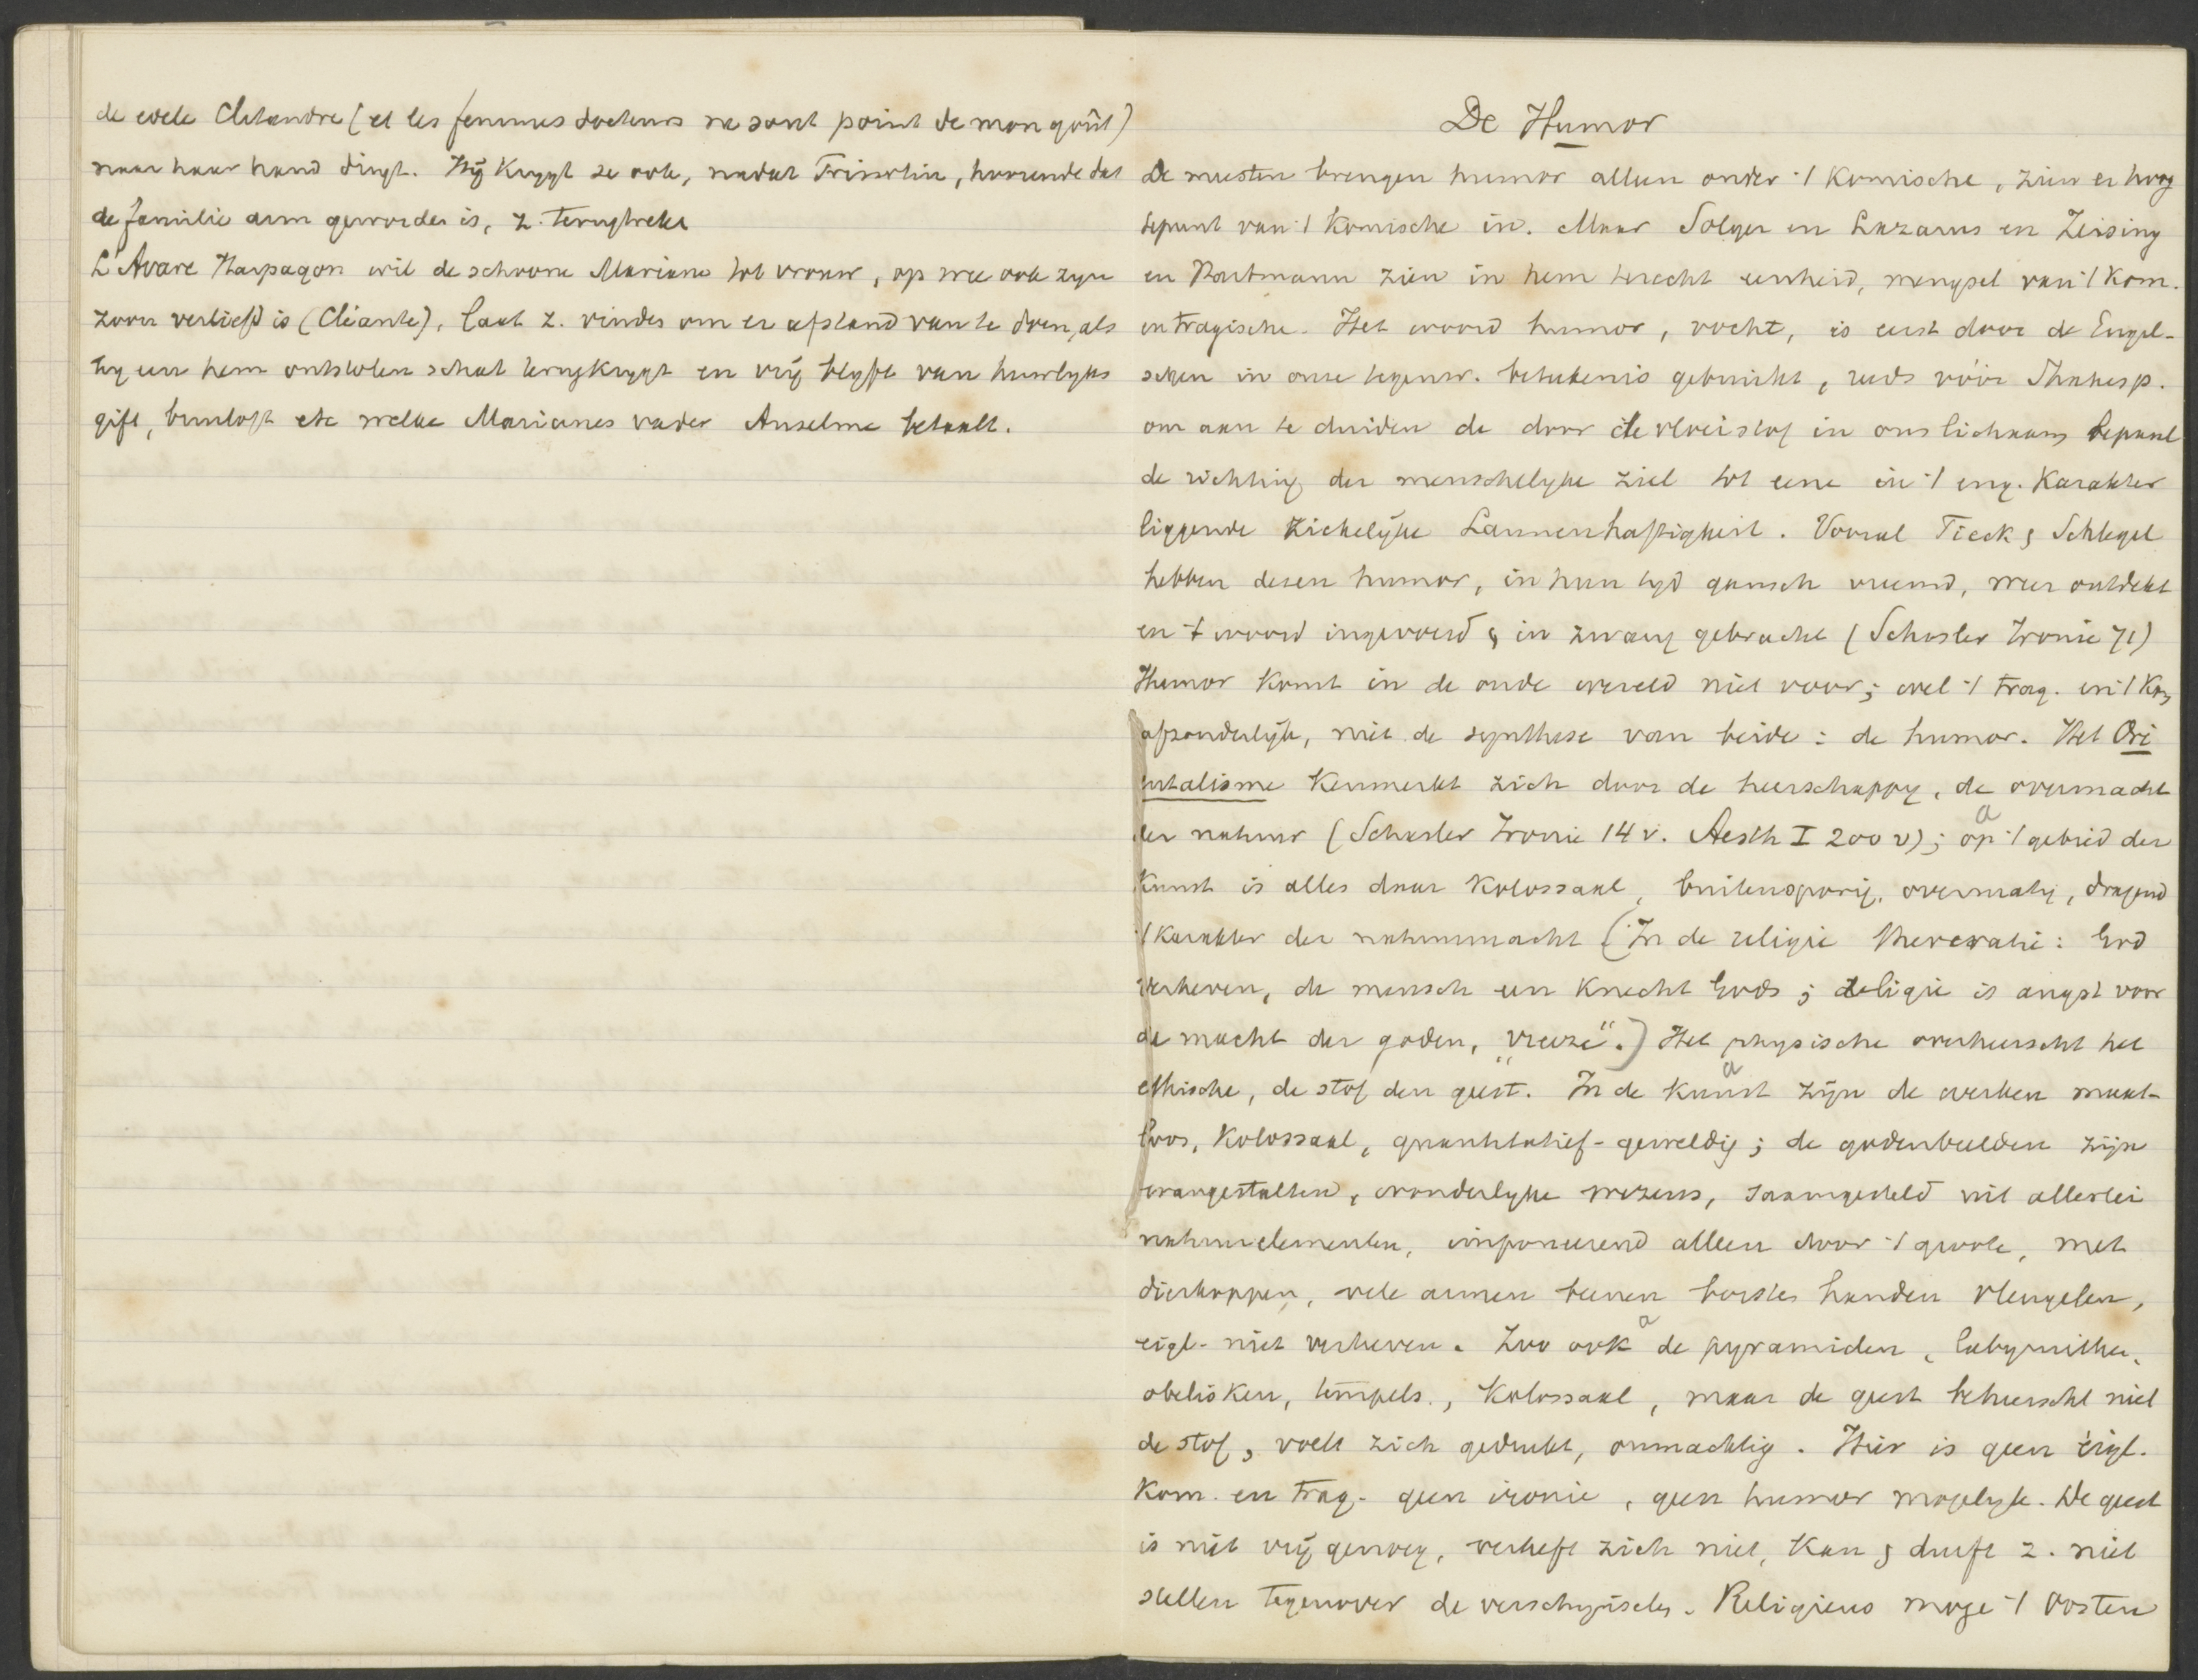 de edele Clitandre (et les femmes docteurs ne sont point de mon goût)
naar haar hand dingt. Hij krygt ze ook, nadat Trissotin, hoorende dat
de familie arm geworden is, z. terugtrekt
L'Avare Harpagon wil de schoone Mariane tot vrouw, op wie ook zyn
zoon verliefd is (Cléante), laat z. vinden om er afstand van te doen, als
hy een hem ontstolen schat terugkrygt en vrij blyft van huwlyks
gift, bruiloft etc welke Marianes vader Anselme betaalt.
De Humor
De meesten brengen humor alleen onder 't komische, zien er hoog
tepunt van 't komische in. Maar Solger en Lazarus en Zeising
en Portmann zien in hem terecht eenheid, mengsel van 't kom.
en tragische. Het woord humor, vocht, is eerst door de Engel-
schen in onze tegenw. beteekenis gebruikt, reeds vóór Shakesp.
om aan te duiden de door de vloeistof in ons lichaam bepaal
de richting der menschelyke ziel tot eene in 't eng. karakter
liggende ziekelijke Launenhaftigkeit. Vooral Tieck & Schlegel
hebben dezen humor, in hun tyd gansch vreemd, weer ontdekt
en 't woord ingevoerd & in zwang gebracht (Schasler Ironie 71)
Humor komt in de oude wereld niet voor; wel 't trag. en 't kom
afzonderlijk, niet de synthese van beide: de humor. Het Ori
entalisme kenmerkt zich door de heerschappy, de overmacht
der natuur (Schasler Ironie 14 v. Aesth I 200 v); op 't gebied der
a
kunst is alles daar kolossaal, buitensporig, overmatig, dragend
't karakter der natuurmacht (In de religie theocratie: God
verheven, de mensch een knecht Gods; religie is angst voor
de macht der goden, "vreeze".) Het physische overheerscht het
ethische, de stof den geest. In de kunst zijn de werken maat-
a
loos, kolossaal, quantitatief-geweldig; de godenbeelden zijn
wangestalten, wonderlyke wezens, saamgesteld uit allerlei
natuurelementen, imponeerend alleen door 't groote, met
dierkoppen, vele armen beenen borsten handen vleugelen,
eigl. niet verheven. Zoo ook de pyramiden, labyrinthen,
a
obelisken, tempels., kolossaal, maar de geest beheerscht niet
de stof, voelt zich gedrukt, onmachtig. Hier is geen eigl.
kom. en trag. geen ironie, geen humor mogelyk. De geest
is niet vrij genoeg, verheft zich niet, kan & durft z. niet
stellen tegenover de verschynselen. Religieus moge 't Oosten